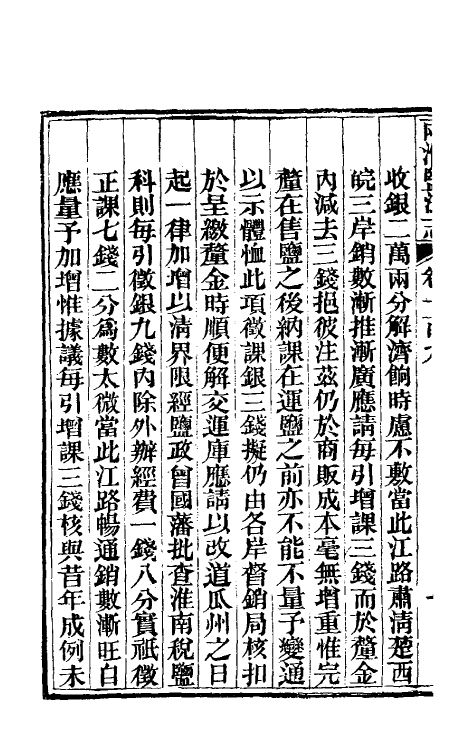 收銀二萬兩分解濟餉時慮不敷當此江路肅清楚西
皖三岸銷數漸推漸廣應請每引增課三錢而於釐金
內減去三錢挹彼注茲仍於商販成本毫無增重惟完
釐在售鹽之後納課在運鹽之前亦不能不量予變通
以示體恤此項徵課銀三錢擬仍由各岸督銷局核扣
於呈繳釐金時順便解交運庫應請以改道瓜州之日
起一律加增以清界限經鹽政曾國藩批查淮南稅鹽
科則每引徵銀九錢內除外辦經費一錢八分實祇徵
正課七錢二分爲數太微當此江路暢通銷數漸旺自
應量予加增惟據議每引增課三錢核與昔年成例未